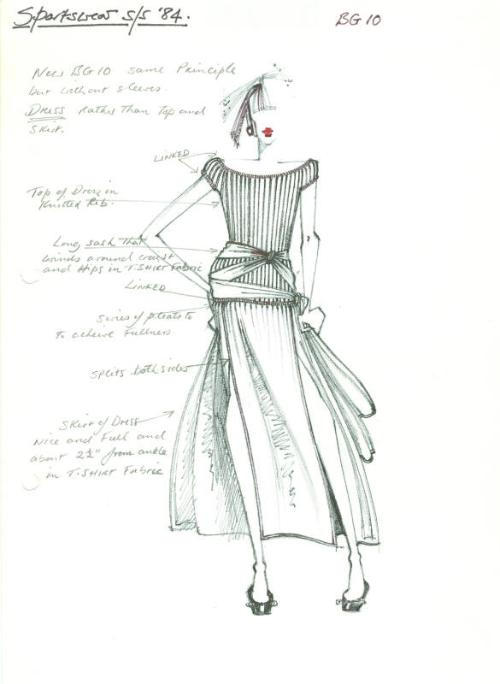 Sportswear s/s '84.
BG 10
New BG10 same Principle
but without sleeves.
Dress rather than Top and
Skirt.
LINKED
Top of Dress in
Knitted Rib.
Long sash that
winds around waist
and Hips in T-SHIRT FABRIC
LINKED
Series of pleats to
to acheive fullness
splits both sides
Skirt of Dress
Nice and Full and
about 2½" from ankle
in T-SHIRT FABRIC